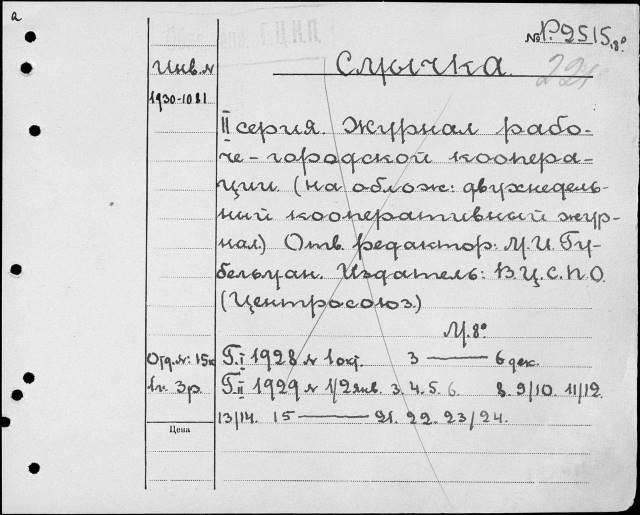 а
№ Р.2515 8º
Инв. №
Смычка.
221
1930-1081
II серия. Журнал рабо-
че-городской коопера-
ции. (на облож: двухнедель-
ный кооперативный жур-
нал.) Отв. редактор: М.И. Гу-
бельман. Издатель: В.Ц.С.П.О.
(Центросоюз.)
М. 8º
Отд. №: 15к Г.I 1928 № 1 окт. 3 — 6 дек.
1 г. 3р. Г.II 1929 № 1/2 янв. 3. 4. 5. 6. 8. 9/10. 11/12.
13/14. 15 — 21. 22. 23/24.
Цена